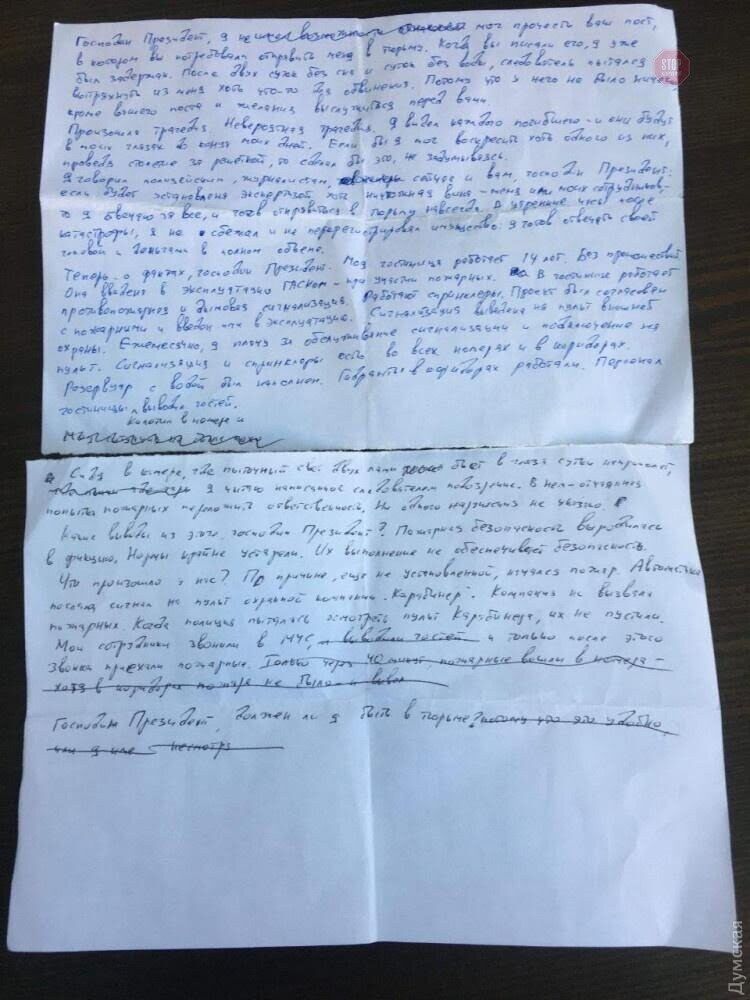 Господин Президент, я не мог прочесть ваш пост,
в котором вы потребовали отправить меня в тюрьму. Когда вы писали его, я уже
был задержан. После двух суток без сна и суток без воды, следователь пытался
вытряхнуть из меня хоть что-то для обвинения. Потому что у него не было ничего,
кроме вашего поста и желания выслужиться перед вами.
Произошла трагедия. Невероятная трагедия. Я видел каждого погибшего - и они будут
в моих глазах до конца моих дней. Если бы я мог воскресить хоть одного из них,
проведя столетие за решеткой, то сделал бы это, не задумываясь.
Я говорил полицейским, журналистам, сейчас и вам, господин Президент:
если будет установлена экспертизой хоть ничтожная вина - меня или моих сотрудников -
то я отвечаю за все, и готов отправиться в тюрьму навсегда. В утренние часы после
катастрофы, я не сбежал и не перерегистрировал имущество. Я готов отвечать своей
головой и деньгами в полном объеме.
Теперь - о фактах, господин Президент. Моя гостиница работает 14 лет. Без происшествий.
Она введена в эксплуатацию ГАСКом - при участии пожарных. В гостинице работает
противопожарная и дымовая сигнализация. Работают спринклеры. Проект был согласован
с пожарными и введен ими в эксплуатацию. Сигнализация выведена на пульт внешней
охраны. Ежемесячно, я плачу за обслуживание сигнализации и подключение на
пульт. Сигнализация и спринклеры есть во всех номерах и в коридорах.
Резервуар с водой был наполнен. Гидранты в коридорах работали. Персонал
гостиницы выводил гостей.
колотил в номера и
Сидя в камере, где пыточный свет двух ламп бьет в глаза сутки напролет,
я читаю написанное следователем подозрение. В нем - отчаянная
попытка пожарных переложить ответственность. Ни одного нарушения не указано.
Какие выводы из этого, господин Президент? Пожарная безопасность выродилась
в фикцию. Нормы крайне устарели. Их выполнение не обеспечивает безопасность.
Что произошло у нас? По причине, еще не установленной, начался пожар. Автоматика
послала сигнал на пульт охранной компании "Карабинер". Компания не вызвала
пожарных. Когда полиция пыталась осмотреть пульт Карабинера, их не пустили.
Мои сотрудники звонили в МЧС, и выводили гостей и только после этого
звонка приехали пожарные. Только через 40 минут пожарные вошли в номера -
хотя в коридорах пожара не было - и вывел
Господин Президент, должен ли я быть в тюрьме? потому что это удобно,
или я или несмотря
STOP
Думская